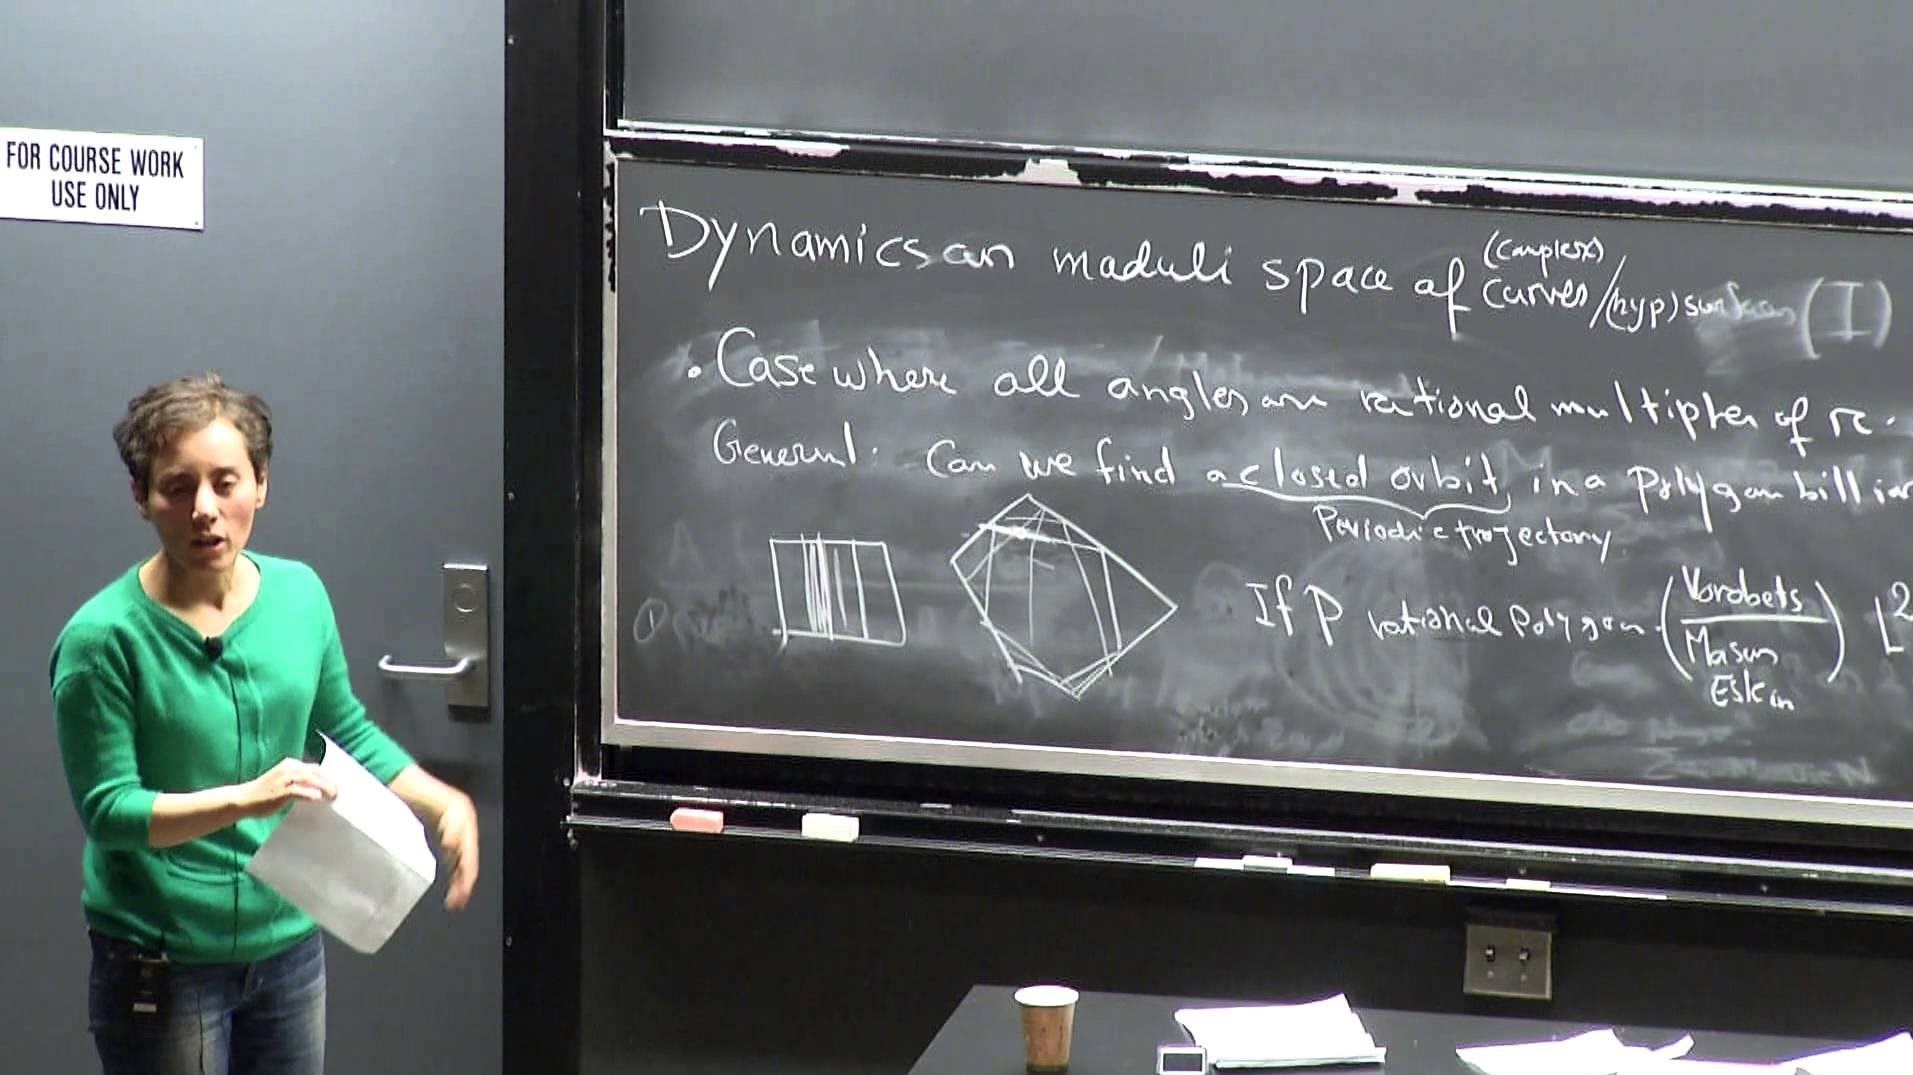 FOR COURSE WORK
USE ONLY
Dynamics on moduli space of (complex) curves/(hyp) surfaces (I)
• Case where all angles are rational multiples of π.
General: Can we find a closed orbit, in a polygon billiar
Periodic trajectory
If P rational polygon (Vorobets
Masur
Eskin) L²